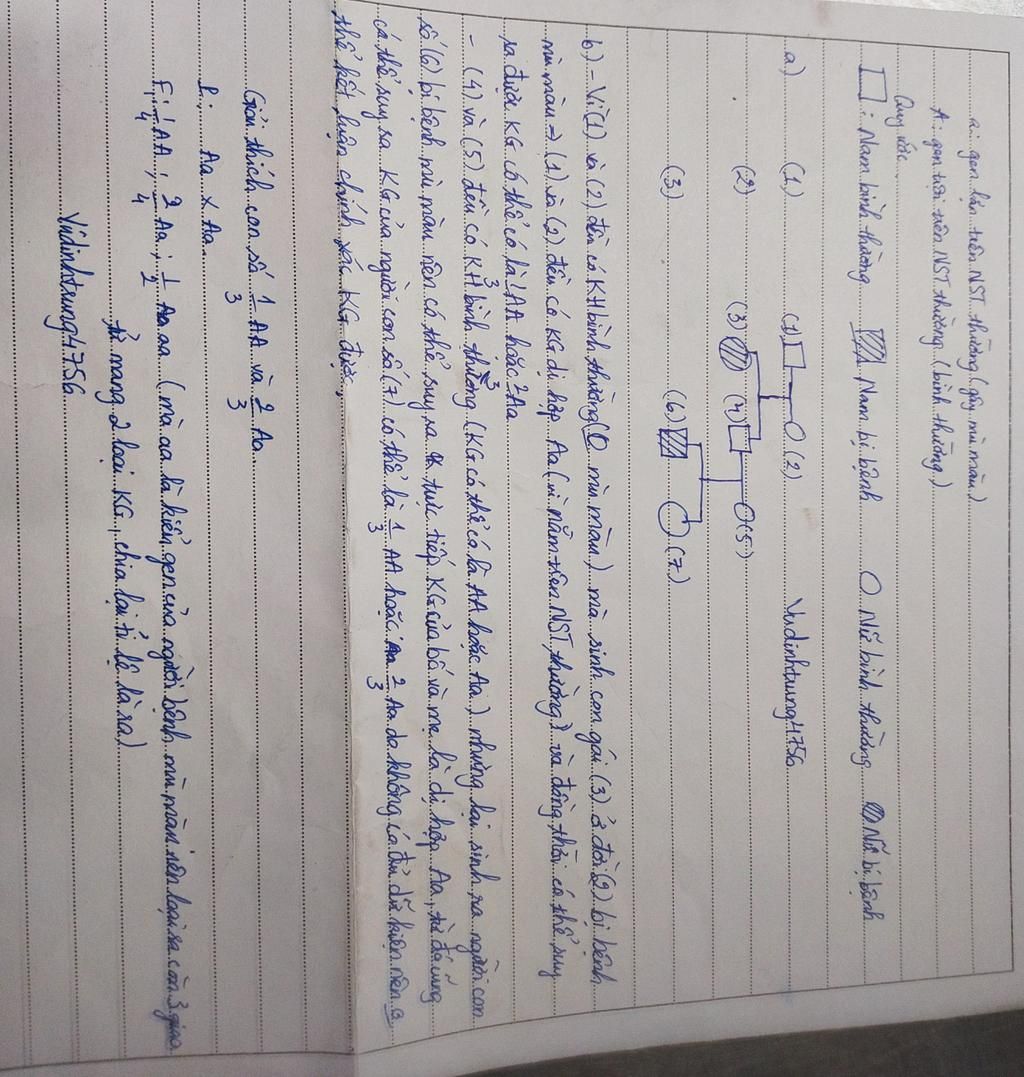 a: gen lặn trên NST thường (gây mù màu)
A: gen trội trên NST thường (bình thường)
Quy ước
: Nam bình thường Nam bị bệnh Nữ bình thường Nữ bị bệnh
a) (1) (1) (2) Vudinhtrung4756
(2) (3) (4) (5)
(3) (6) (7)
b) - Vì (1) và (2) đều có KH bình thường (0 mù màu) mà sinh con gái (3) ở đời (2) bị bệnh
mù màu => (1) và (2) đều có KG dị hợp Aa (vì nằm trên NST thường) và đồng thời có thể suy
ra được KG có thể có là 1/3 AA hoặc 2/3 Aa
- (4) và (5) đều có KH bình thường (KG có thể có là AA hoặc Aa) nhưng lại sinh ra người con
số (6) bị bệnh mù màu nên có thể suy ra trực tiếp KG của bố và mẹ là dị hợp Aa, từ đó cũng
có thể suy ra KG của người con số (7) có thể là 1/3 AA hoặc 2/3 Aa do không có đủ dữ kiện nên
thể kết luận chính xác KG được.
Giải thích con số 1/3 AA và 2/3 Aa
P: Aa x Aa
F: 1/4 AA; 2/4 Aa; 1/2 aa (mà aa là kiểu gen của người bệnh mù màu nên loại ra còn 3
mang 2 loại KG, chia lại tỉ lệ là ra)
Vudinhtrung4756